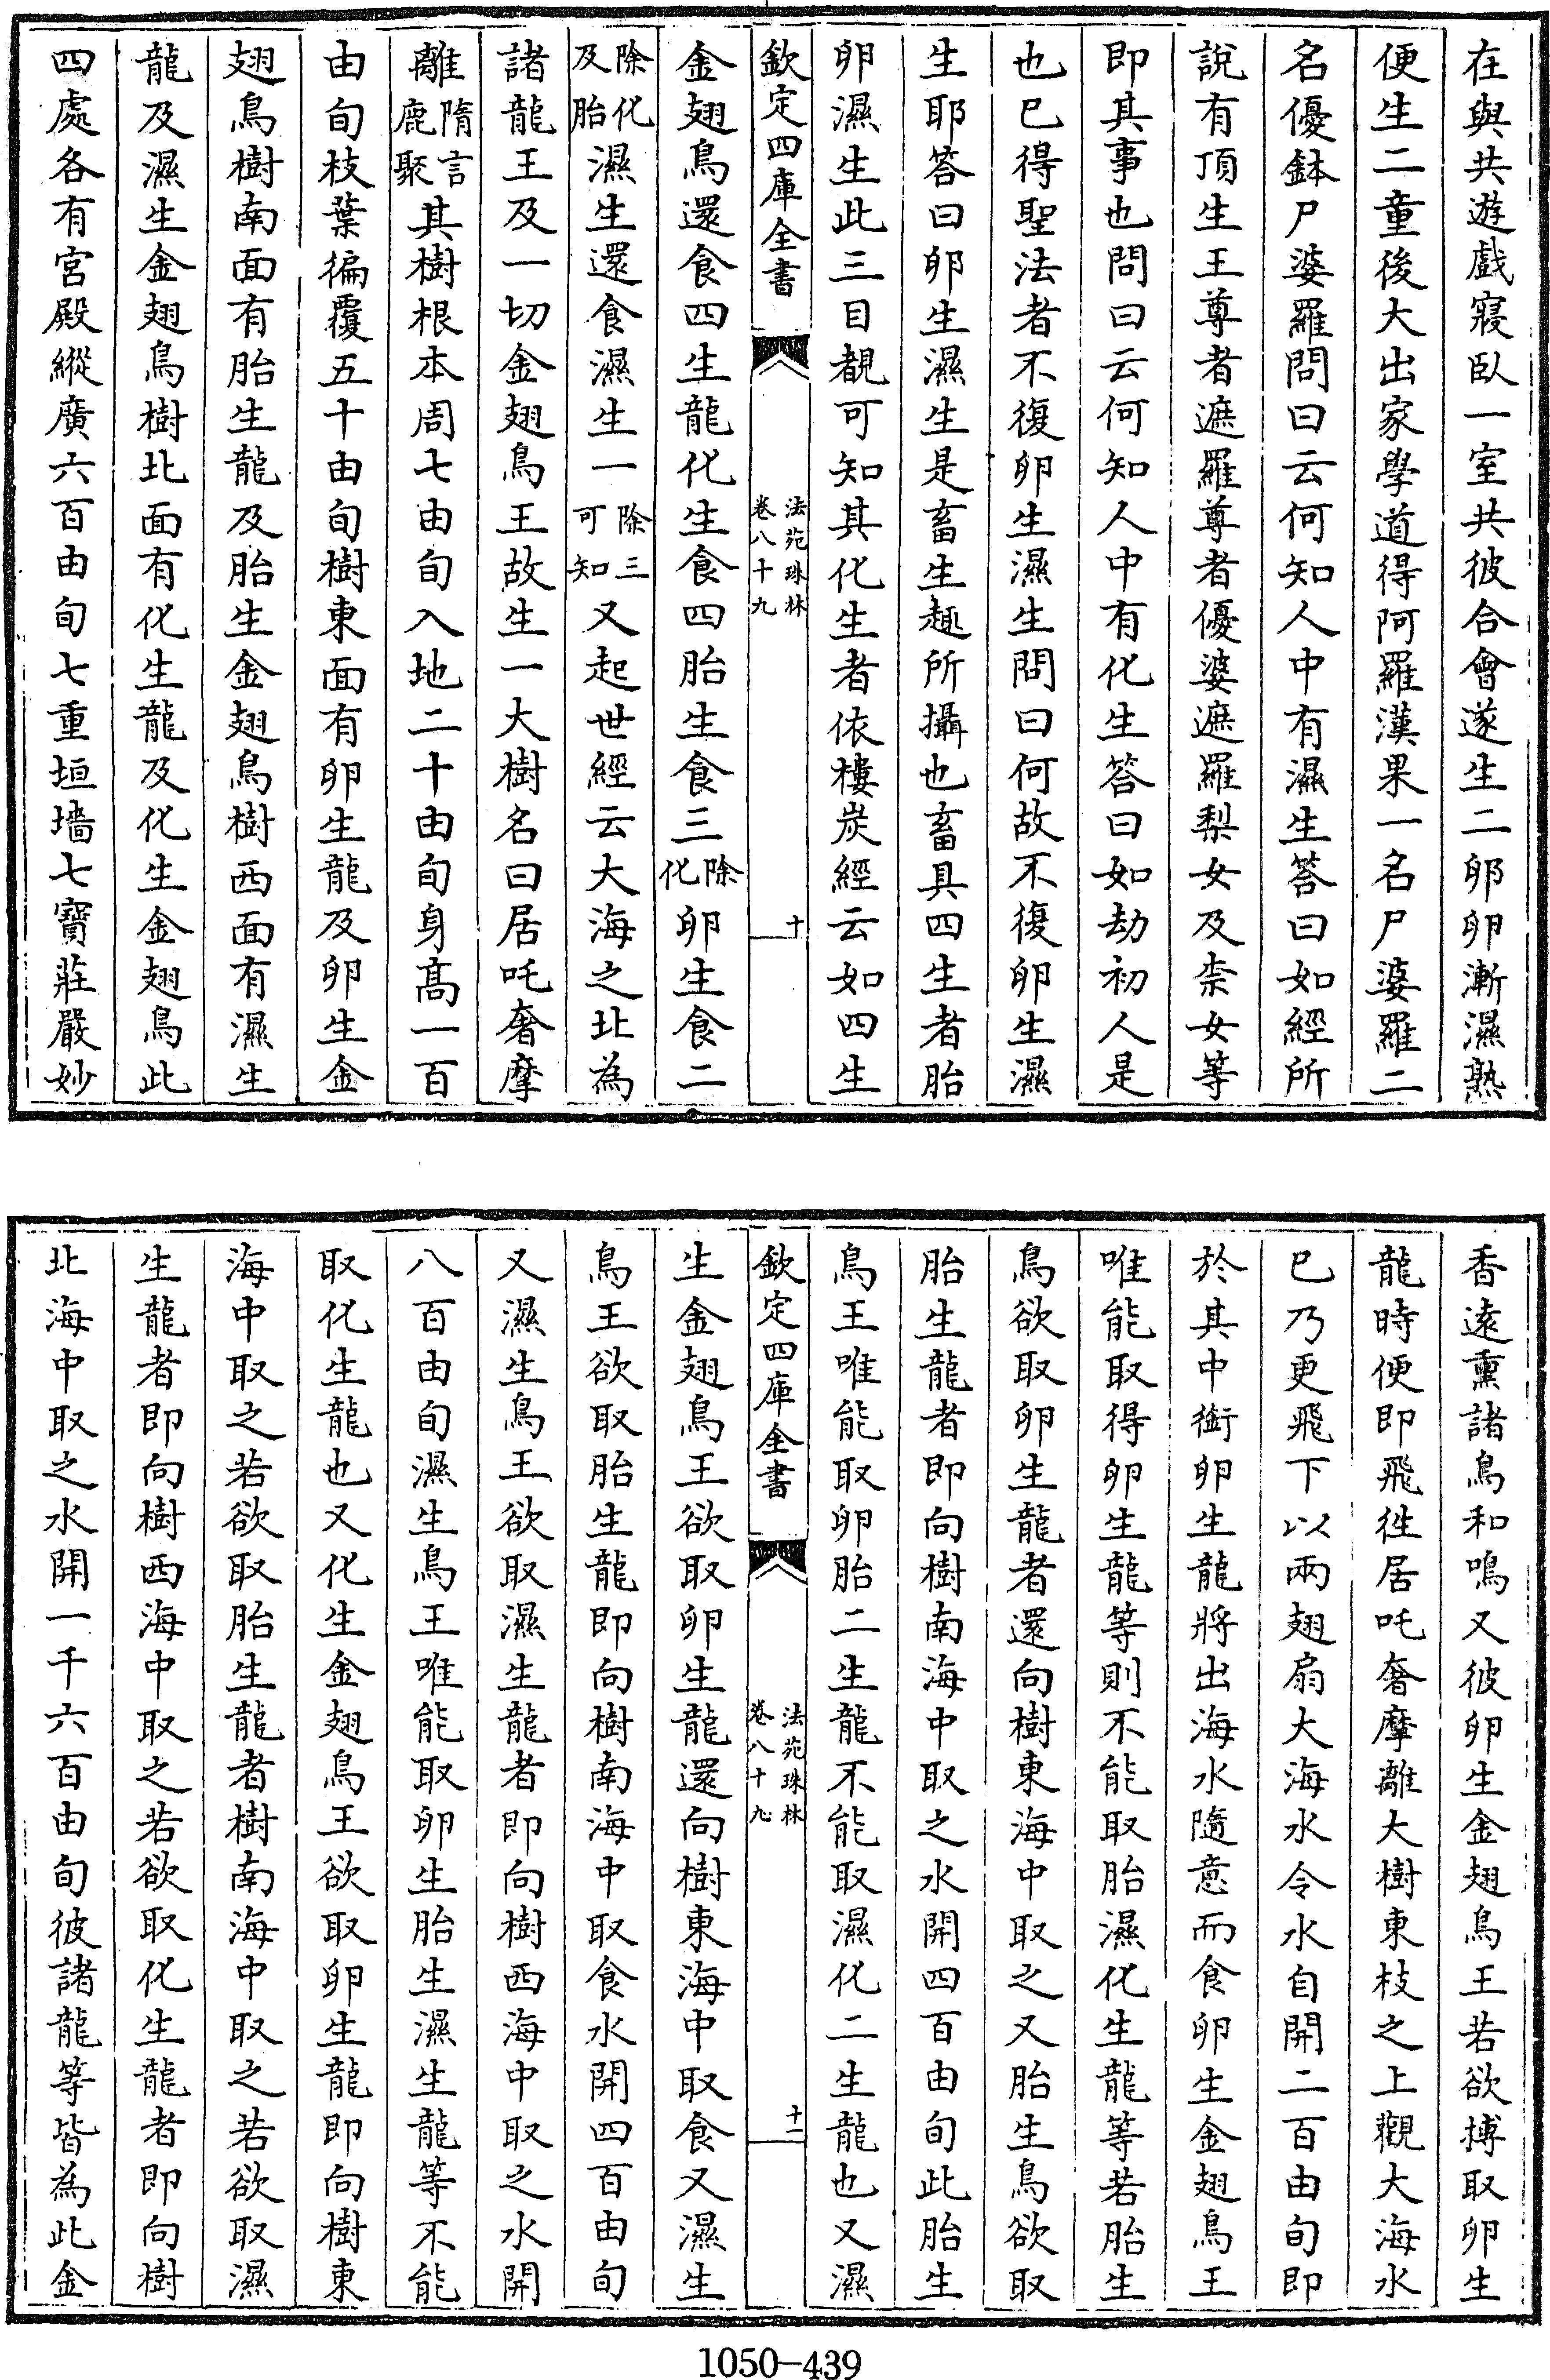 在與共遊戲寢臥一室共彼合會遂生二卵卵漸濕熟
便生二童後大出家學道得阿羅漢果一名尸婆羅二
名優鉢尸婆羅問曰云何知人中有濕生答曰如經所
說有頂生王尊者遮羅尊者優婆遮羅梨女及柰女等
即其事也問曰云何知人中有化生答曰如劫初人是
也已得聖法者不復卵生濕生問曰何故不復卵生濕
生耶答曰卵生濕生是畜生趣所攝也畜具四生者胎
卵濕生此三目覩可知其化生者依樓炭經云如四生
欽定四庫全書
法苑珠林
卷八十九
十
金翅鳥還食四生龍化生食四胎生食三除化卵生食二
除化及胎濕生還食濕生一除三可知又起世經云大海之北為
諸龍王及一切金翅鳥王故生一大樹名曰居吒奢摩
離隋言鹿聚其樹根本周七由旬入地二十由旬身高一百
由旬枝葉徧覆五十由旬樹東面有卵生龍及卵生金
翅鳥樹南面有胎生龍及胎生金翅鳥樹西面有濕生
龍及濕生金翅鳥樹北面有化生龍及化生金翅鳥此
四處各有宮殿縱廣六百由旬七重垣墻七寶莊嚴妙
香遠熏諸鳥和鳴又彼卵生金翅鳥王若欲搏取卵生
龍時便即飛往居吒奢摩離大樹東枝之上觀大海水
已乃更飛下以兩翅扇大海水令水自開二百由旬即
於其中銜卵生龍將出海水隨意而食卵生金翅鳥王
唯能取得卵生龍等則不能取胎濕化生龍等若胎生
鳥欲取卵生龍者還向樹東海中取之又胎生鳥欲取
胎生龍者即向樹南海中取之水開四百由旬此胎生
鳥王唯能取卵胎二生龍不能取濕化二生龍也又濕
欽定四庫全書
法苑珠林
卷八十九
十一
生金翅鳥王欲取卵生龍還向樹東海中取食又濕生
鳥王欲取胎生龍即向樹南海中取食水開四百由旬
又濕生鳥王欲取濕生龍者即向樹西海中取之水開
八百由旬濕生鳥王唯能取卵生胎生濕生龍等不能
取化生龍也又化生金翅鳥王欲取卵生龍即向樹東
海中取之若欲取胎生龍者樹南海中取之若欲取濕
生龍者即向樹西海中取之若欲取化生龍者即向樹
北海中取之水開一千六百由旬彼諸龍等皆為此金
1050-439